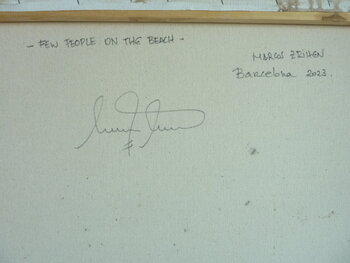 - FEW PEOPLE ON THE BEACH -
MARCOS ZRIHEN
Barcelona 2023.